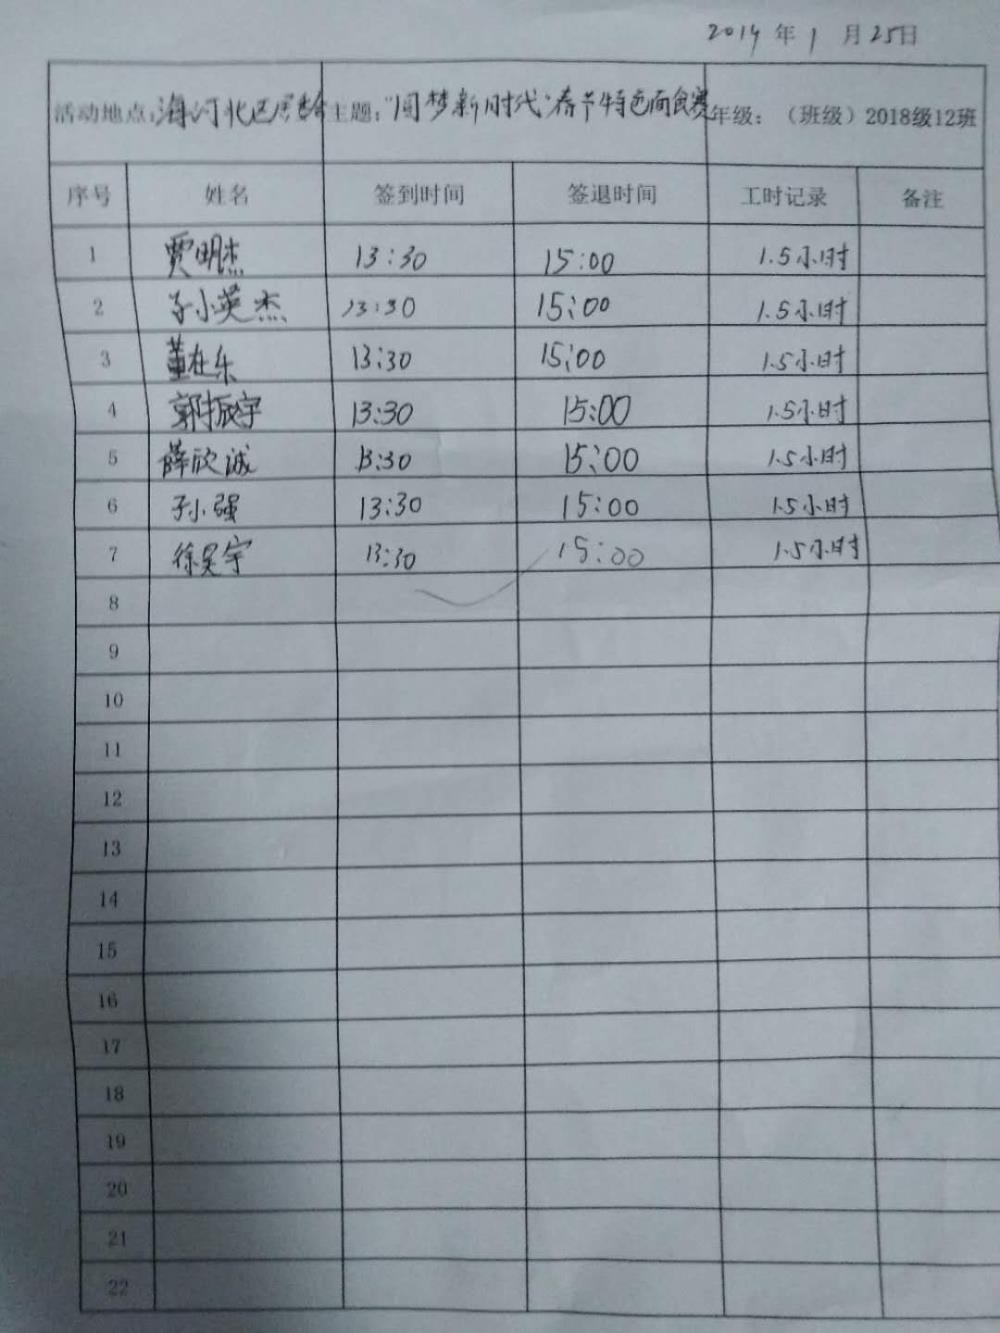 2019年1月25日
活动地点:海河北区居委 主题:"圆梦新时代"春节特色面食赛 年级:（班级）2018级12班
序号 姓名 签到时间 签退时间 工时记录 备注
1 贾明杰 13:30 15:00 1.5小时
2 孙英杰 13:30 15:00 1.5小时
3 董在乐 13:30 15:00 1.5小时
4 郭振宇 13:30 15:00 1.5小时
5 薛欣诚 13:30 15:00 1.5小时
6 孙强 13:30 15:00 1.5小时
7 徐昊宇 13:30 15:00 1.5小时
8
9
10
11
12
13
14
15
16
17
18
19
20
21
22